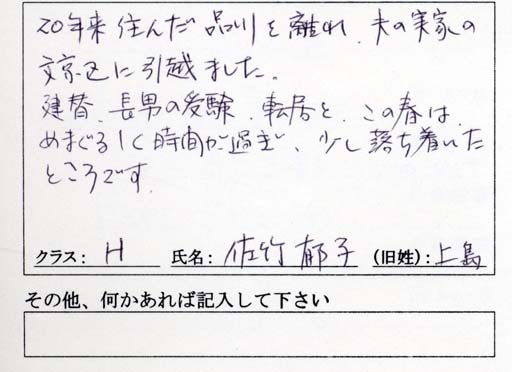 20年来住んだ品川を離れ、夫の実家の
文京区に引越ました。
建替、長男の受験、転居と、この春は
めまぐるしく時間が過ぎ、少し落ち着いた
ところです。
クラス: H 氏名: 佐竹郁子 (旧姓): 上島
その他、何かあれば記入して下さい